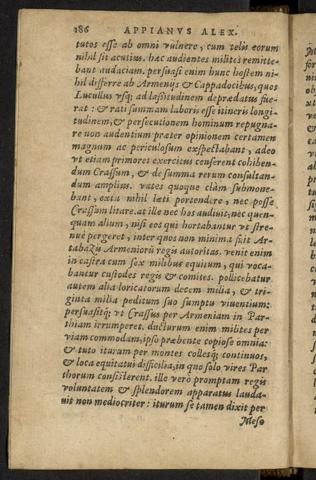 186 APPIANVS ALEX.
tutos esse ab omni vulnere, cum telis eorum
nihil sit acutius. hac audientes milites remitte-
bant audaciam. persuasi enim hunc hostem ni-
hil differre ab Armenijs & Cappadocibus, quos
Lucullus vsq; ad lassitudinem depraedatus fue-
rat: & rati summam laboris esse itineris longi-
tudinem, & persecutionem hominum repugna-
re non audentium praeter opinionem certamen
magnum ac periculosum exspectabant, adeo
vt etiam primores exercitus censerent cohiben-
dum Crassum, & de summa rerum consultan-
dum amplius. vates quoque clàm submone-
bant, exta nihil laeti portendere, nec posse
Crassum litare. at ille nec hos audiuit, nec quen-
quam alium, nisi eos qui hortabantur vt stre-
nuè pergeret, inter quos non minima fuit Ar-
tabazu Armeniorũ regis autoritas. venit enim
in castra cum sex milibus equitum, qui voca-
bantur custodes regis & comites. pollicebatur
autem alia loricatorum decem milia, & tri-
ginta milia peditum suo sumptu viuentium:
persuasitq; vt Crassus per Armeniam in Par-
thiam irrumperet. ducturum enim milites per
viam commodam, ipso praebente copiose omnia:
& tuto iturum per montes collesq; continuos,
& loca equitatui difficilia, in quo solo vires Par
thorum consisterent. ille verò promptam regis
voluntatem & splendorem apparatus lauda-
uit non mediocriter: iturum se tamen dixit per
Meso